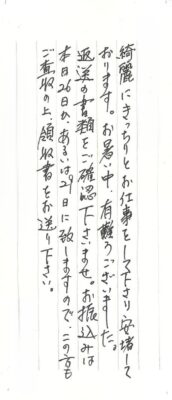 綺麗にきっちりとお仕事をして下さり安堵して
おります。お暑い中、有難うございました。
返送の書類をご確認下さいませ。お振込みは
本日26日か、あるいは29日に致しますので、この方も
ご査収の上、領収書をお送り下さい。